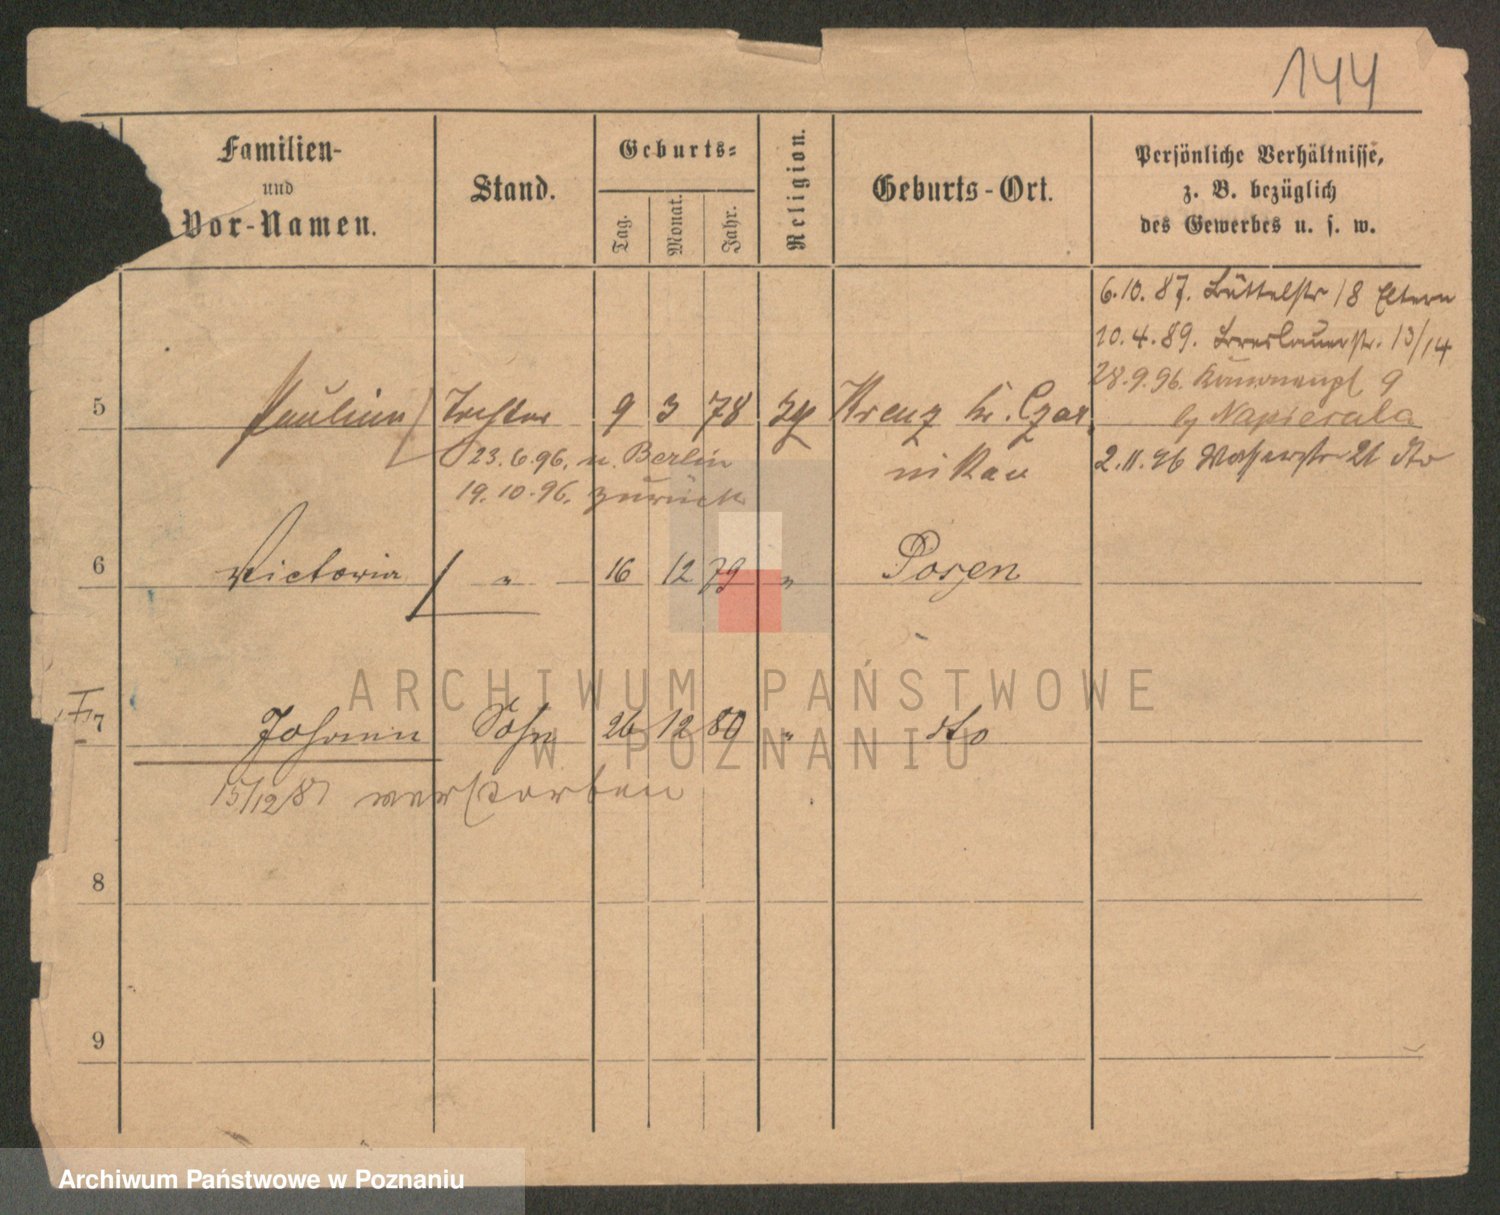 144
Familien-
und
Vor-Namen.
Stand.
Geburts-
Tag.
Monat.
Jahr.
Religion.
Geburts-Ort.
Persönliche Verhältnisse,
z. B. bezüglich
des Gewerbes u. s. w.
6.10.87. Büttelstr 18 Eltern
10.4.89. Breslauerstr. 13/14
28.9.96. 9
5 Pauline Tochter 9 3 78 Kreuz Kr. Czar
by Napierala
23.6.96. n. Berlin
nikau
2.11.96 Wasserstr 21
19.10.96. zurück
6 Victoria " 16 12 79 " Posen
7 Johann Sohn 26 12 80 " dto
15/12 87 verstorben
8
9
ARCHIWUM PAŃSTWOWE
W POZNANIU
Archiwum Państwowe w Poznaniu